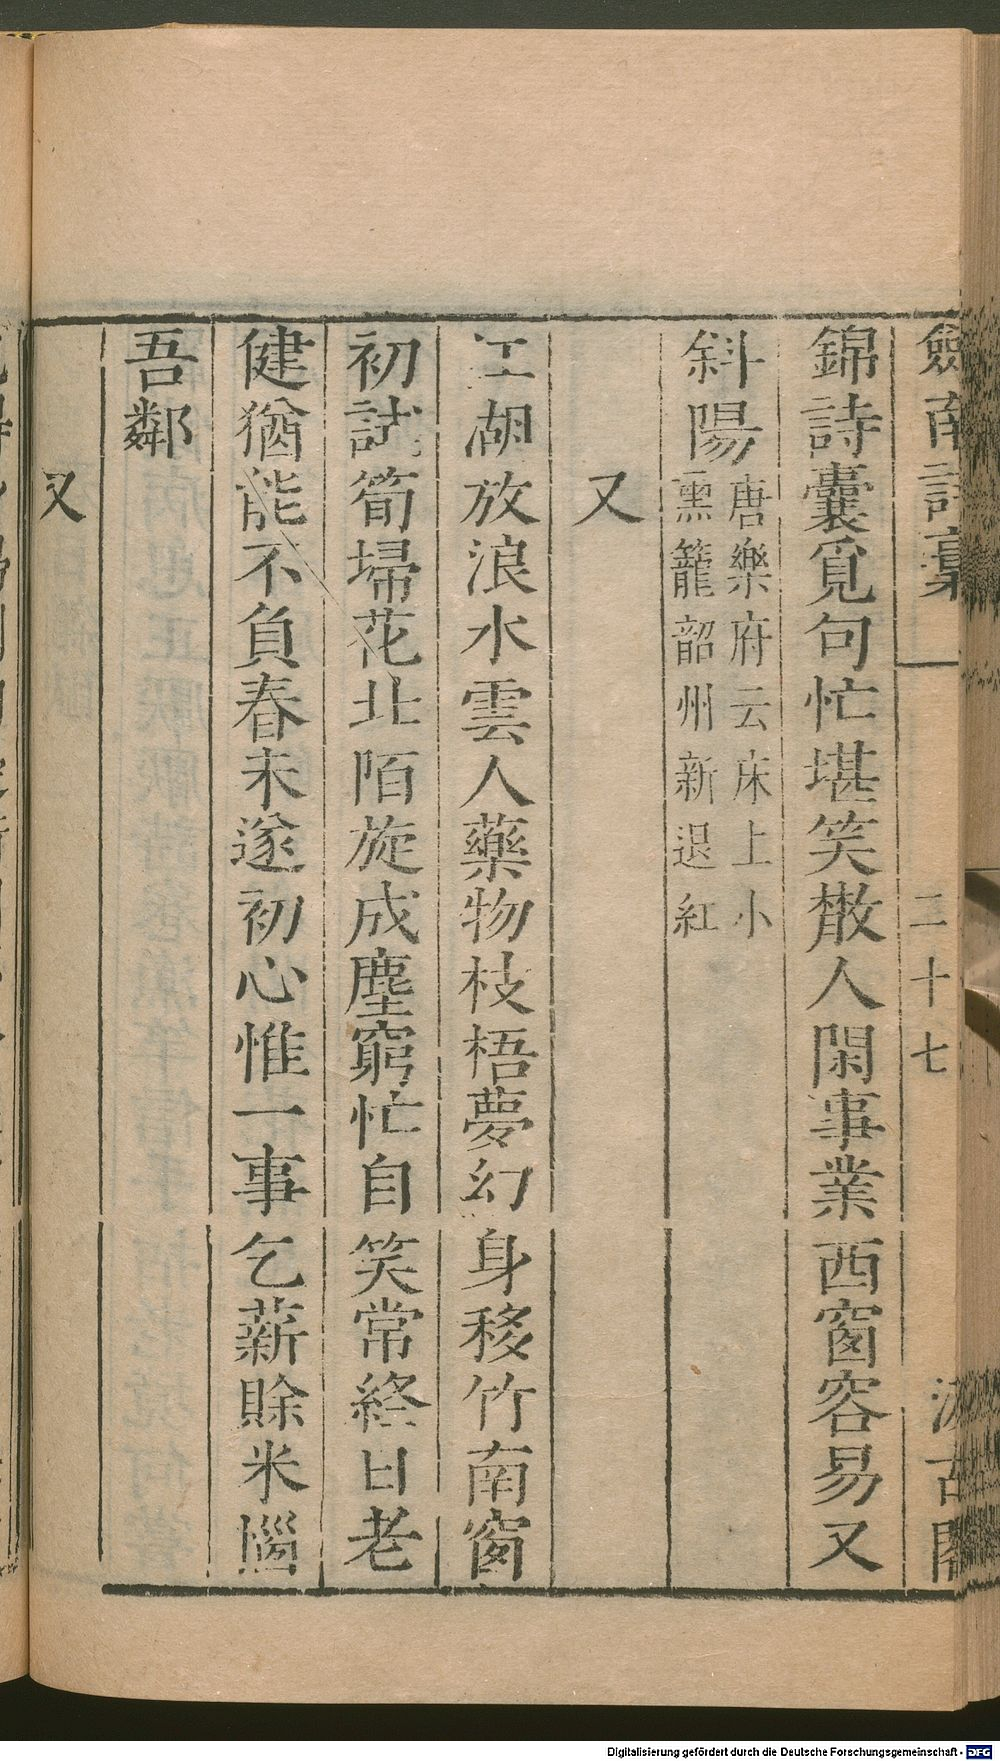 劍南詩稾
二十七
汲古閣
錦詩囊覓句忙堪笑散人閑事業西窗容易又
斜陽唐樂府云床上小熏籠韶州新退紅
又
江湖放浪水雲人藥物枝梧夢幻身移竹南窗
初試筍埽花北陌旋成塵窮忙自笑常終日老
健猶能不負春未遂初心惟一事乞薪賒米惱
吾鄰
又
Digitalisierung gefördert durch die Deutsche Forschungsgemeinschaft - DFG